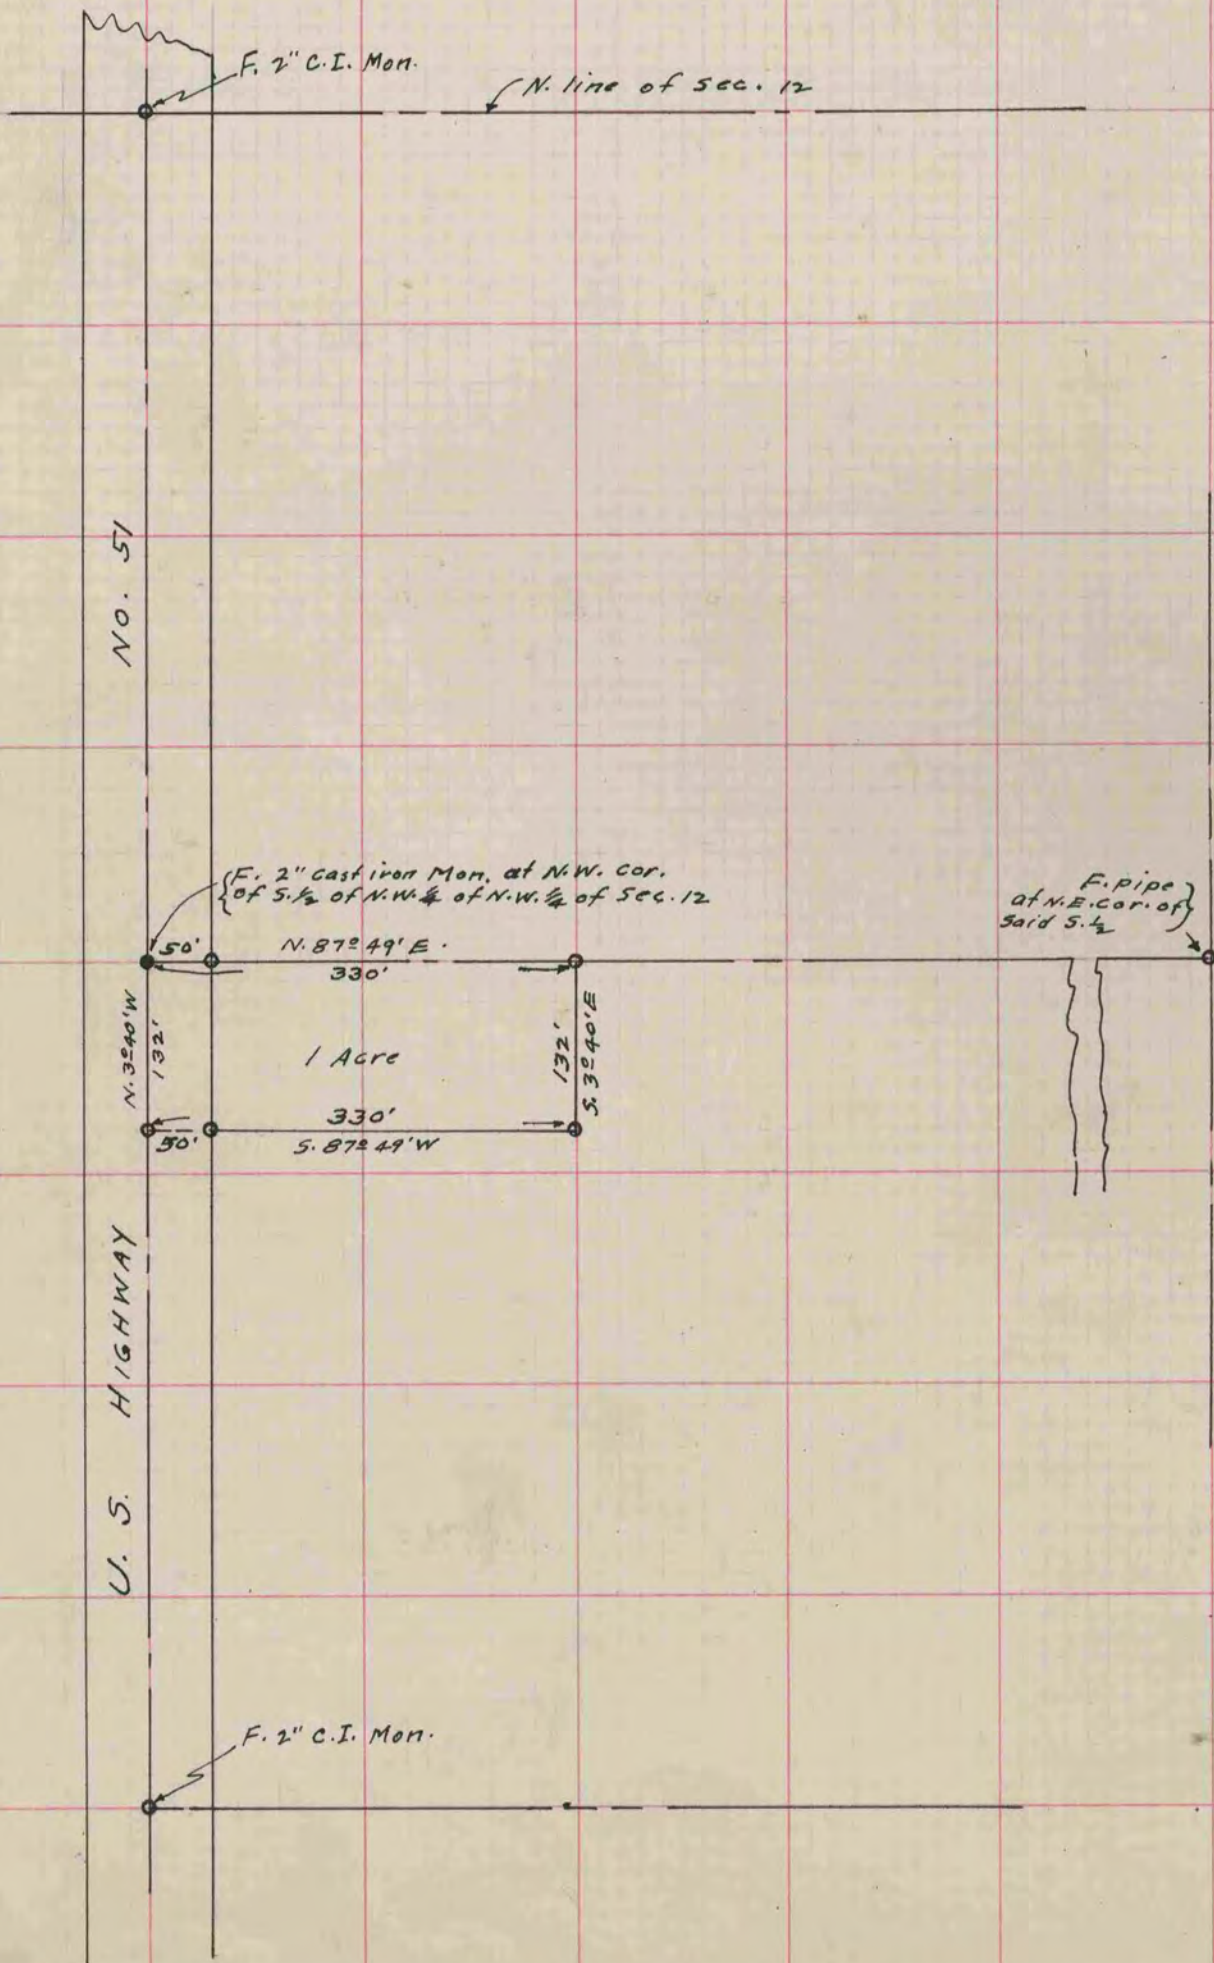 F. 2" C.I. Mon.
N. line of sec. 12
NO. 51
F. 2" cast iron Mon. at N.W. cor.
of S.½ of N.W.¼ of N.W.¼ of Sec. 12
F. pipe
at N.E. cor. of
Said S.½
50'
N. 87º 49' E.
330'
N. 3º 40' W
132'
1 Acre
132'
S. 3º 40' E
330'
50'
S. 87º 49' W
U. S. HIGHWAY
F. 2" C.I. Mon.